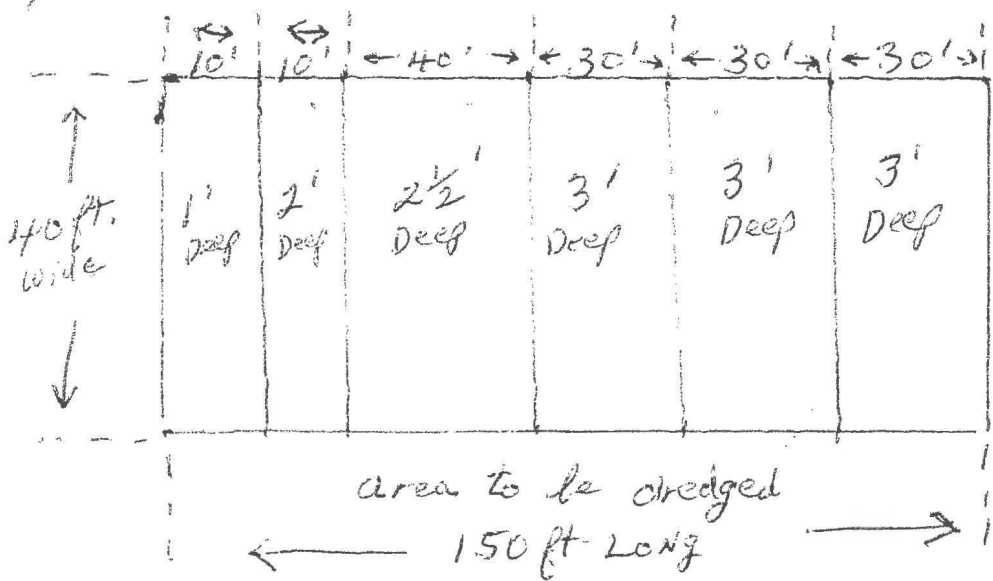 10' 10' 40' 30' 30' 30'
40 ft.
wide
1' 2' 2½' 3' 3' 3'
Deep Deep Deep Deep Deep Deep
area to be dredged
150 ft LONG